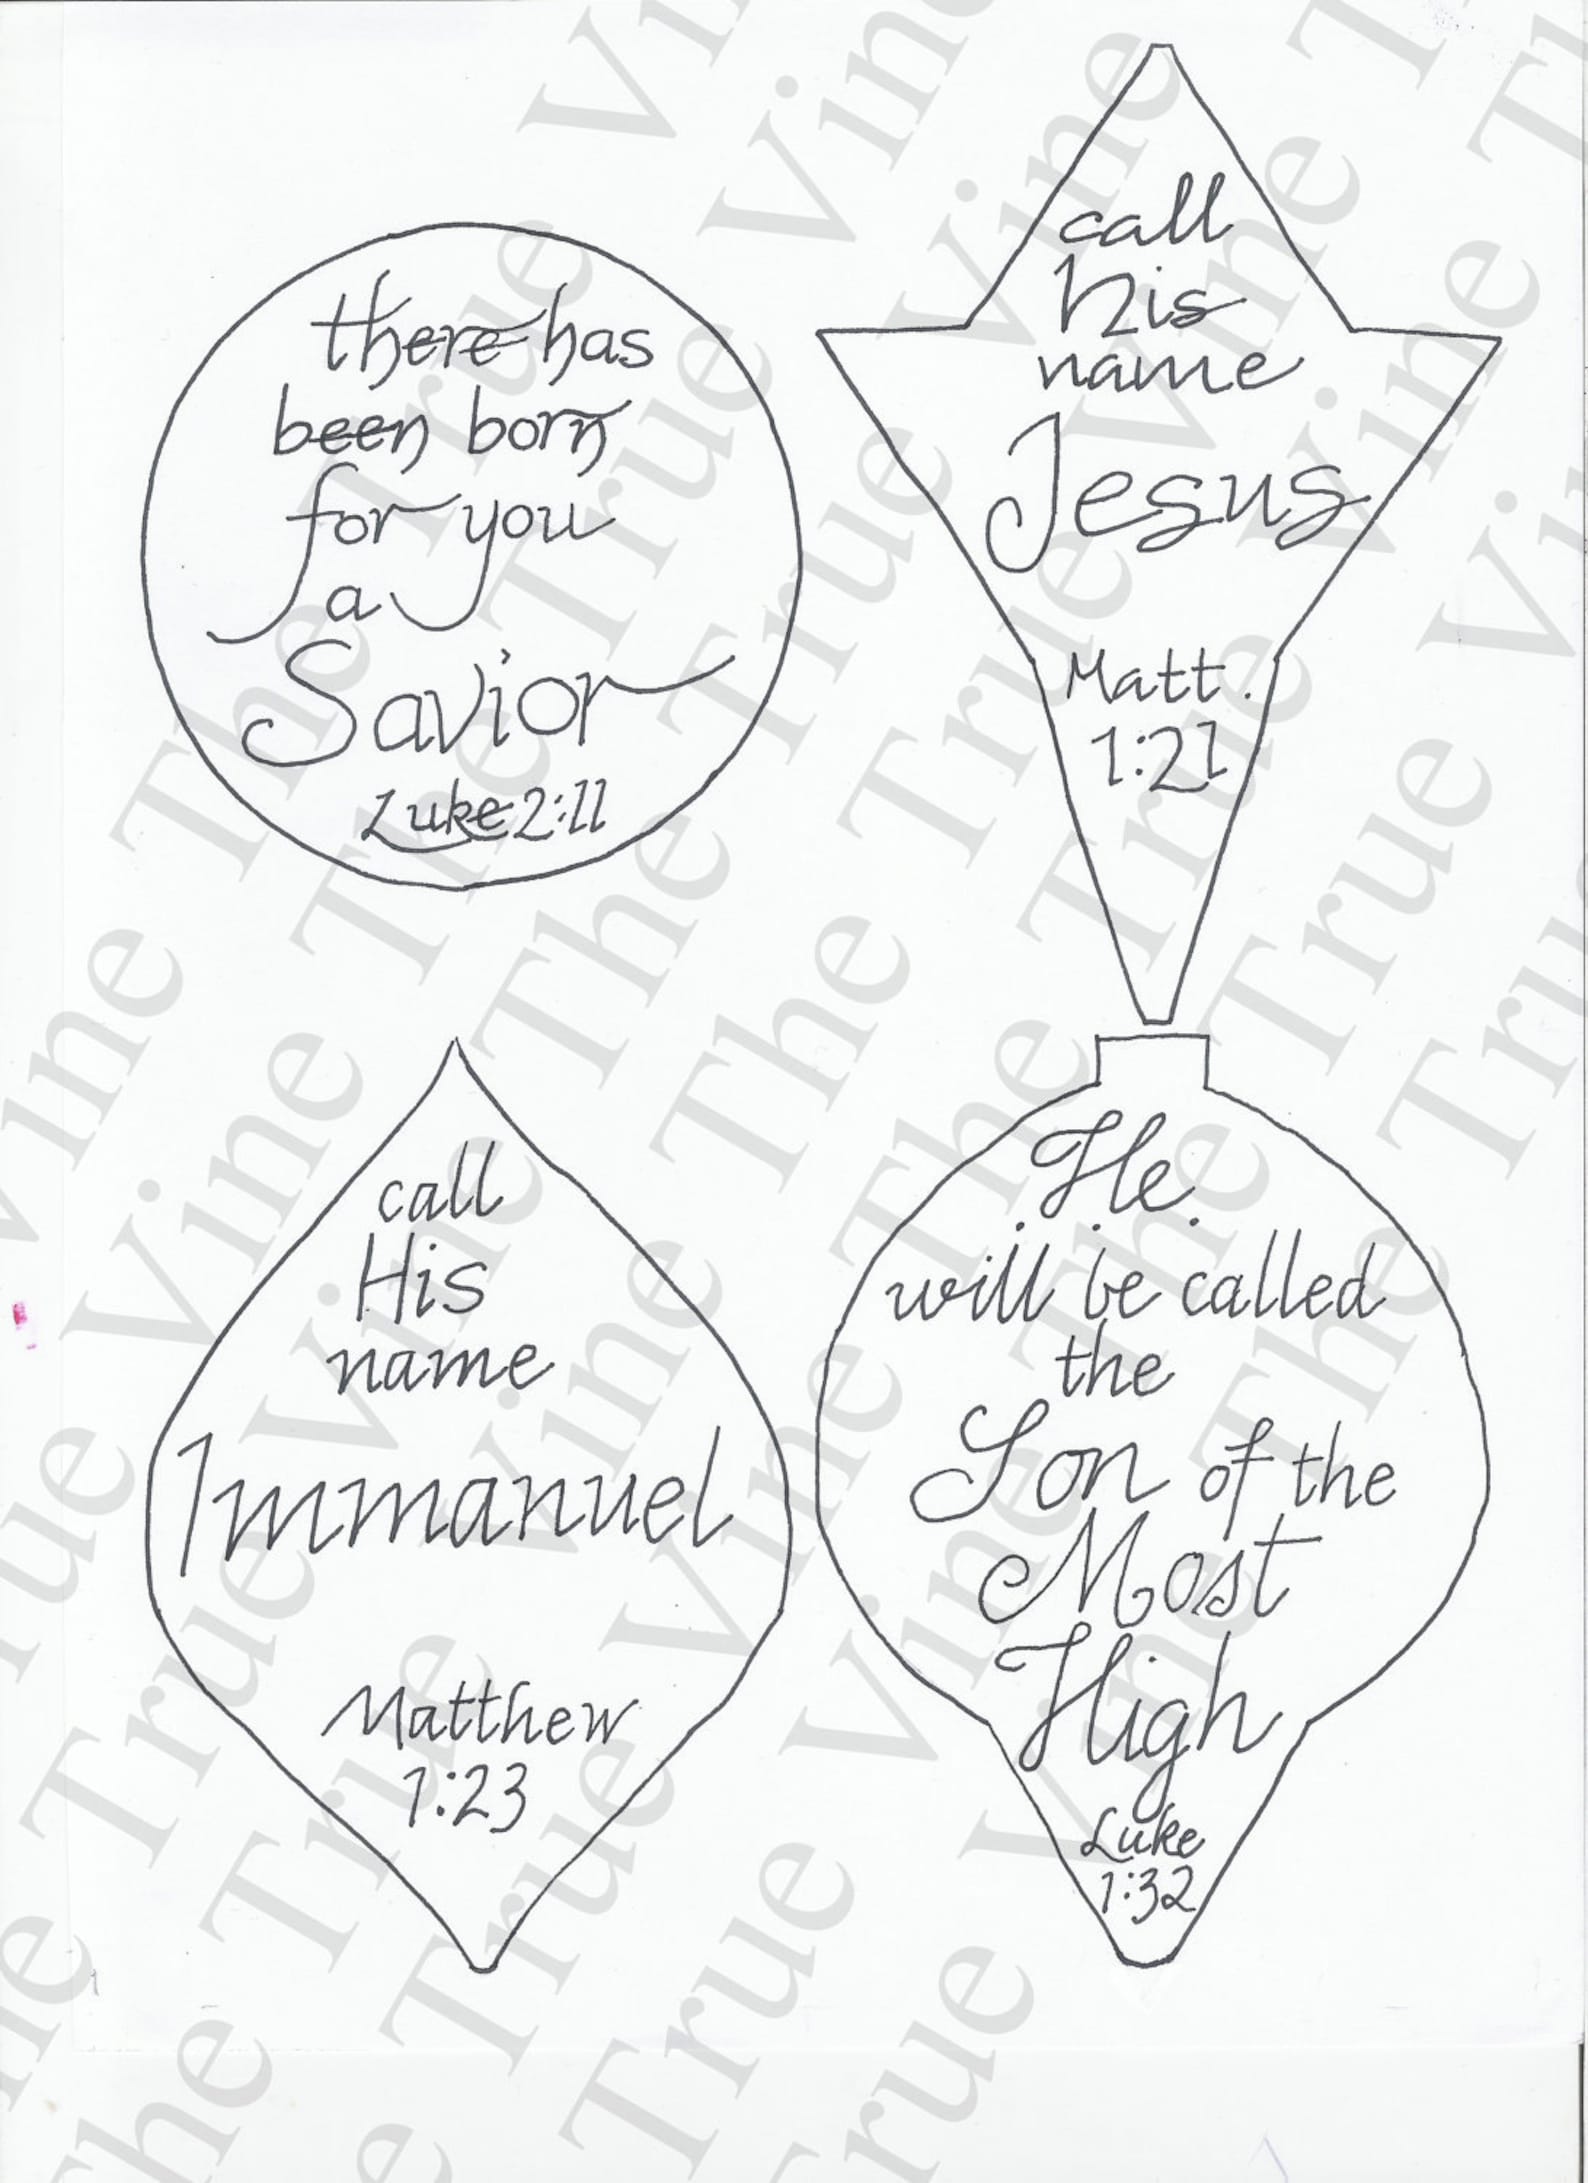 there has
been born
for you
a
Savior
Luke 2:11
call
his
name
Jesus
Matt.
1:21
call
His
name
Immanuel
Matthew
1:23
He
will be called
the
Son of the
Most
High
Luke
1:32
The True Vine